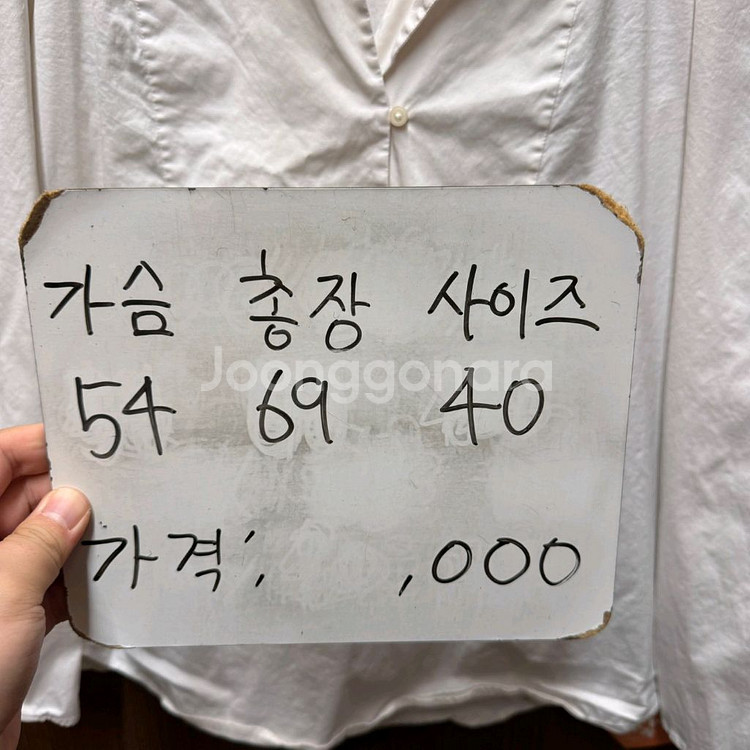 가슴 총장 사이즈
Joonggonara
54 69 40
가격: ,000